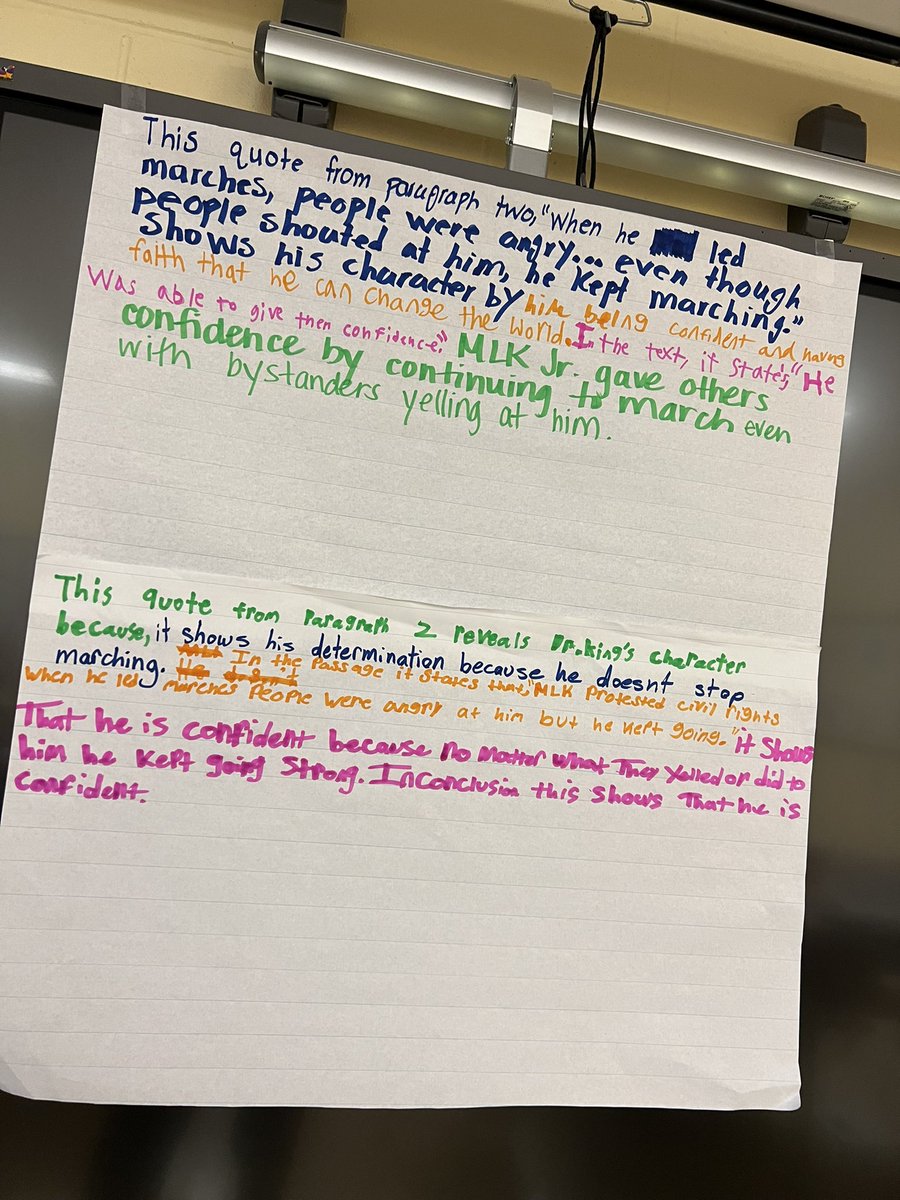 This quote from paragraph two, "When he led
marches, people were angry... even though
people shouted at him, he kept marching."
Shows his character by him being confident and having
faith that he can change the world. In the text, it states, "He
was able to give then confidence." MLK Jr. gave others
confidence by continuing to march even
with bystanders yelling at him.
This quote from Paragraph 2 reveals Dr. King's character
because, it shows his determination because he doesnt stop
marching. In the passage it states that, "MLK Protested civil rights
when he led marches People were angry at him but he kept going." it Shows
That he is confident because no matter what They Yelled or did to
him he kept going Strong. Inconclusion this shows That he is
confident.